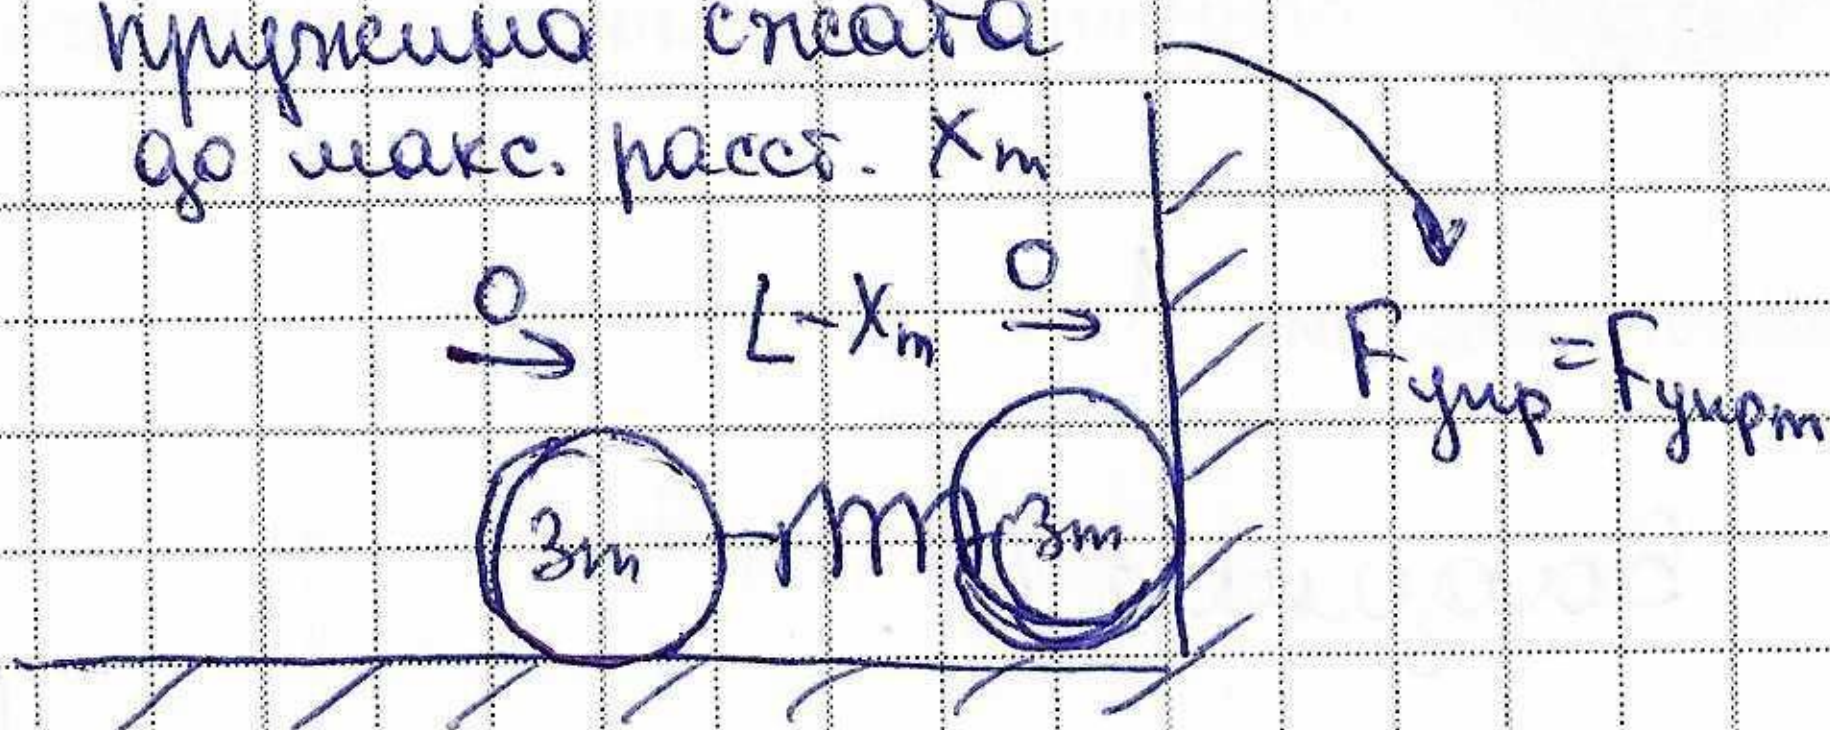 пружина сжата
до макс. расст. Xm
0 L-Xm 0
Fупр=Fупрm
3m 3m